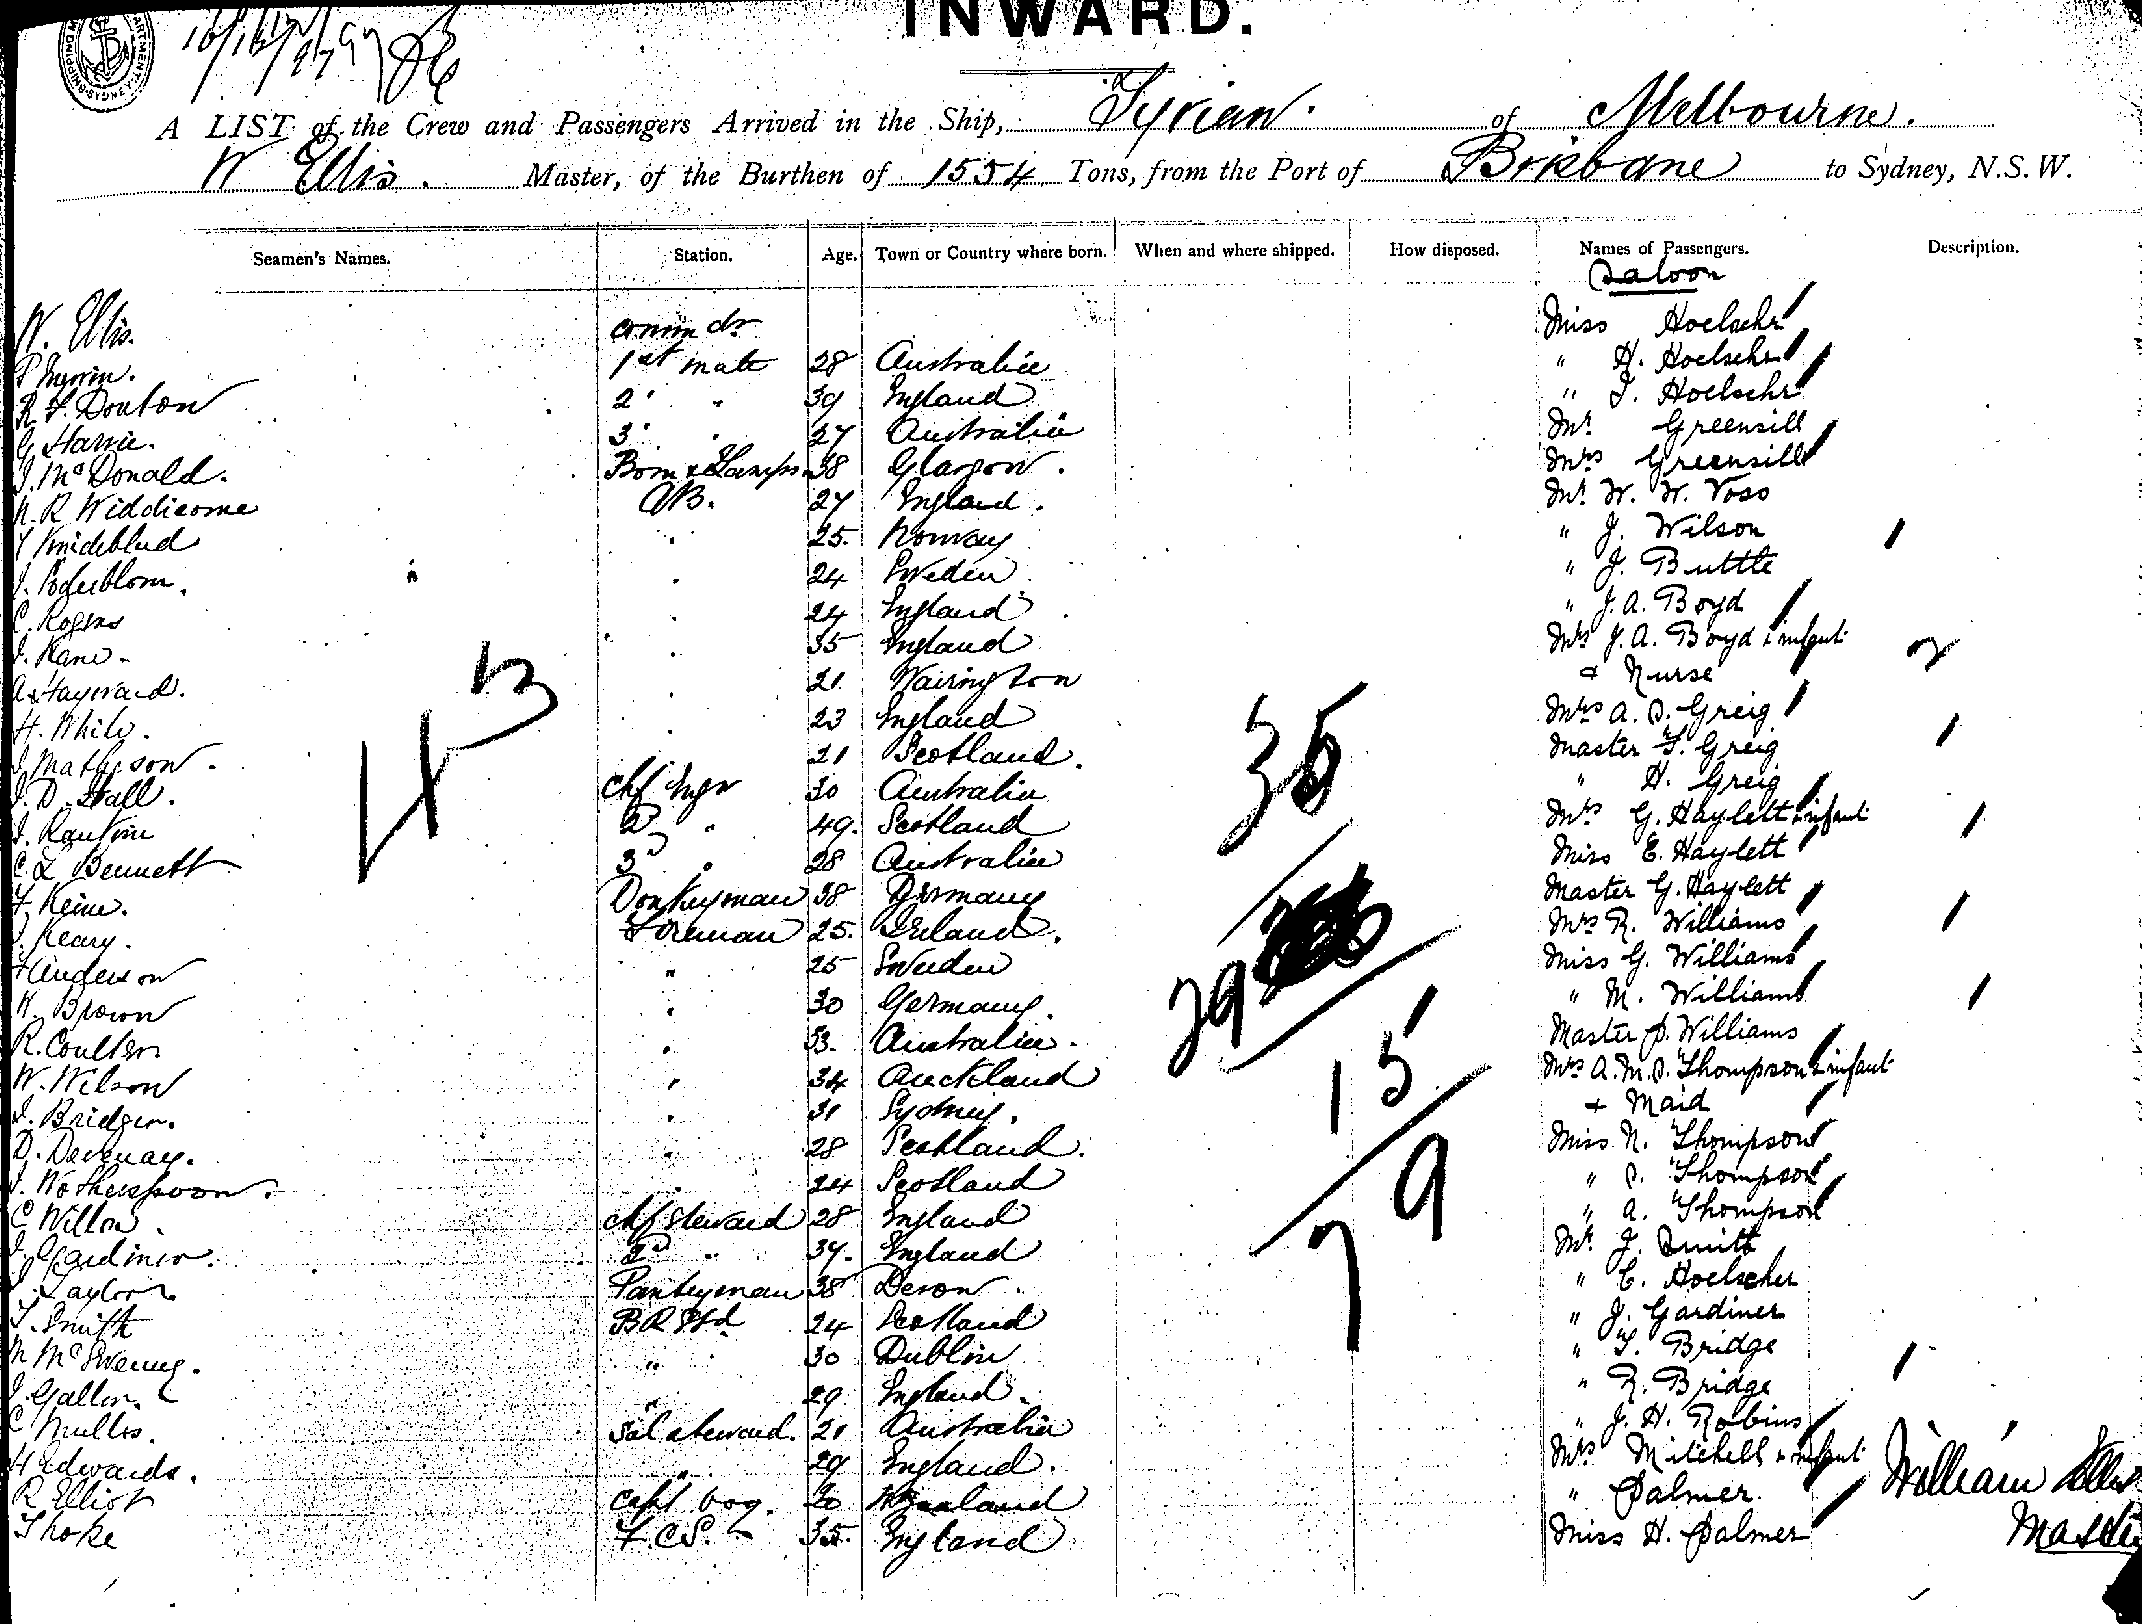 INWARD.
A LIST of the Crew and Passengers Arrived in the Ship, Tyrian. of Melbourne.
W Ellis. Master, of the Burthen of 1554 Tons, from the Port of Brisbane to Sydney, N.S.W.
Seamen's Names. Station. Age. Town or Country where born. When and where shipped. How disposed. Names of Passengers. Description.
Saloon
W. Ellis. Commdr Miss Hoelschr
1st mate 28 Australia " H. Hoelschr
2d " 39 England " I. Hoelschr
G Harrie. 3 " 27 Australia Mr Greensill
J. McDonald. 38 Glasgow. Mrs Greensill
N. R Widdicome AB. 27 England. Mr W. W. Voss
25. Norway " J. Wilson
24 Sweden " J. Buttle
C. Rogers 24 England " J. A. Boyd
J. Kane. 35 England Mrs J. A. Boyd & infant
A Hayward. 21. Warrington & Nurse
H. While. 23 England Mrs A. S. Greig
J. Matheson. 21 Scotland. Master F. Greig
J. D. Hall. chf Engr 30 Australia " H. Greig
J. Rankin 2d " 49. Scotland Mrs G. Haylett & infant
C. L Bennett 3d " 28 Australia Miss E. Haylett
F. Keine. Donkeyman 38 Germany Master G. Haylett
J. Keary. Fireman 25. Ireland. Mrs R. Williams
H Anderson " 25 Sweden Miss G. Williams
W. Brown " 30 Germany. " M. Williams
R. Coulter 33. Australia. Master S. Williams
W. Wilson " 34 Auckland Mrs A. M. S. Thompson & infant
J. Bridger. " 31 Sydney. + Maid
D. Devenay. " 28 Scotland. Miss N. Thompson
J. Wotherspoon. " 24 Scotland " S. Thompson
C Willon. chf steward 28 England " A. Thompson
J. Gardiner. 2d " 37. England Mr J. Smith
J. Taylor Pantryman 38 Devon " C. Hoelscher
T. Smith BR Std 24 Scotland " J. Gardiner
M McSweeney. " 30 Dublin " T. Bridge
J. Gallon. " 29 England. " R. Bridge
C Mullis. Sal steward. 21 Australia " J. H. Robins
H Edwards. " 29 England. Mrs Mitchell & infant
R Elliot Capt boy. 20 " Palmer.
T hoke F.C.S. 35. England Miss H. Palmer
43
36
29
15
9
7
William Ellis
Master